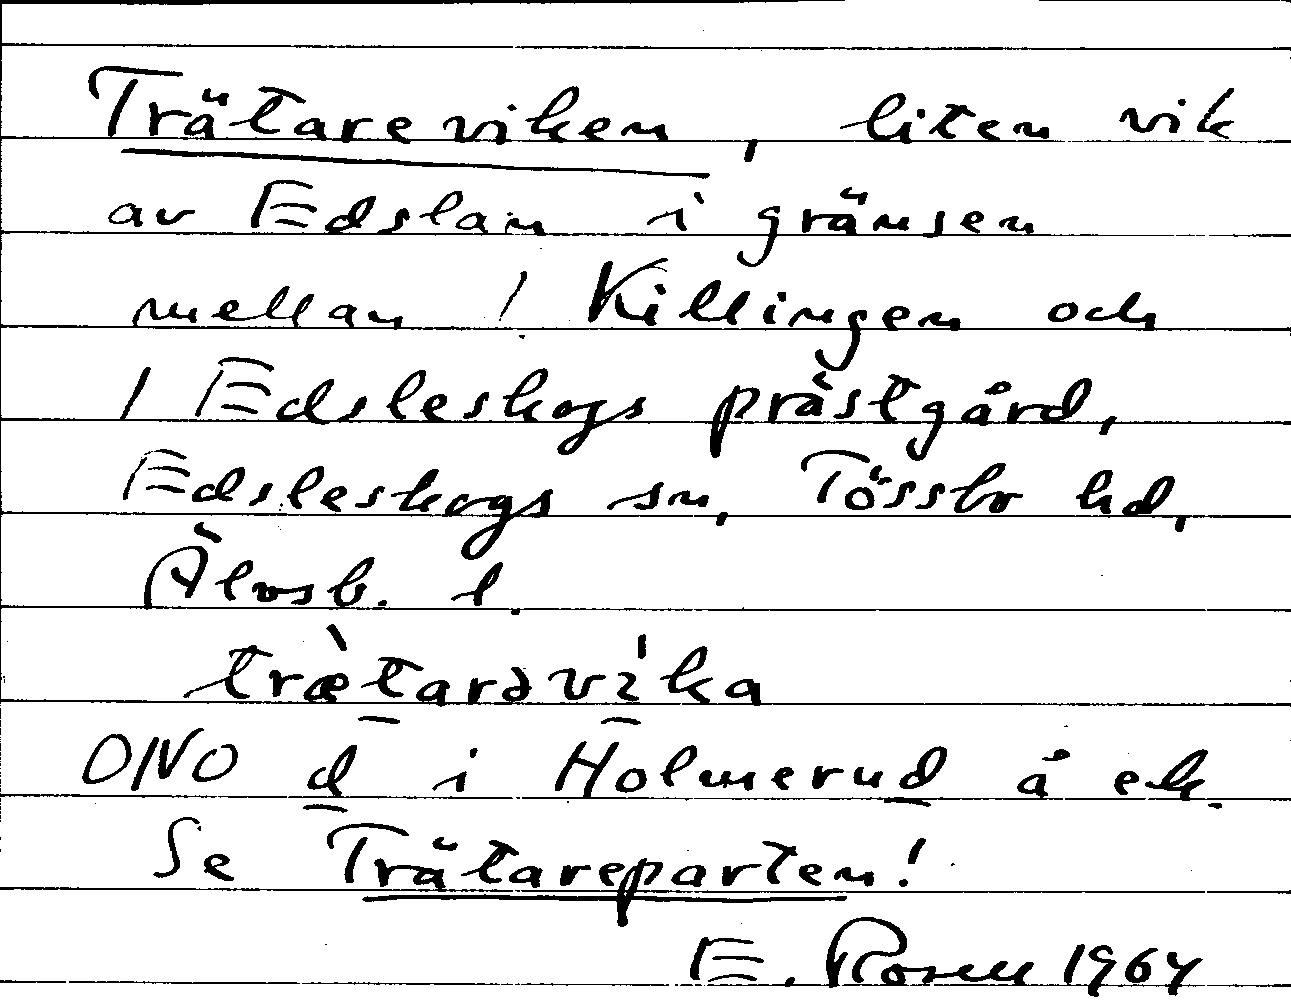 Trätareviken, liten vik
av Edslan i gränsen
mellan / Killingen och
/ Edsleskogs prästgård,
Edsleskogs sn, Tössbo hd,
Älvsb. l.
træ̀tarəvi̍ka
ONO d i Holmerud å ek.
Se Trätareparten!
E. Rosell 1964